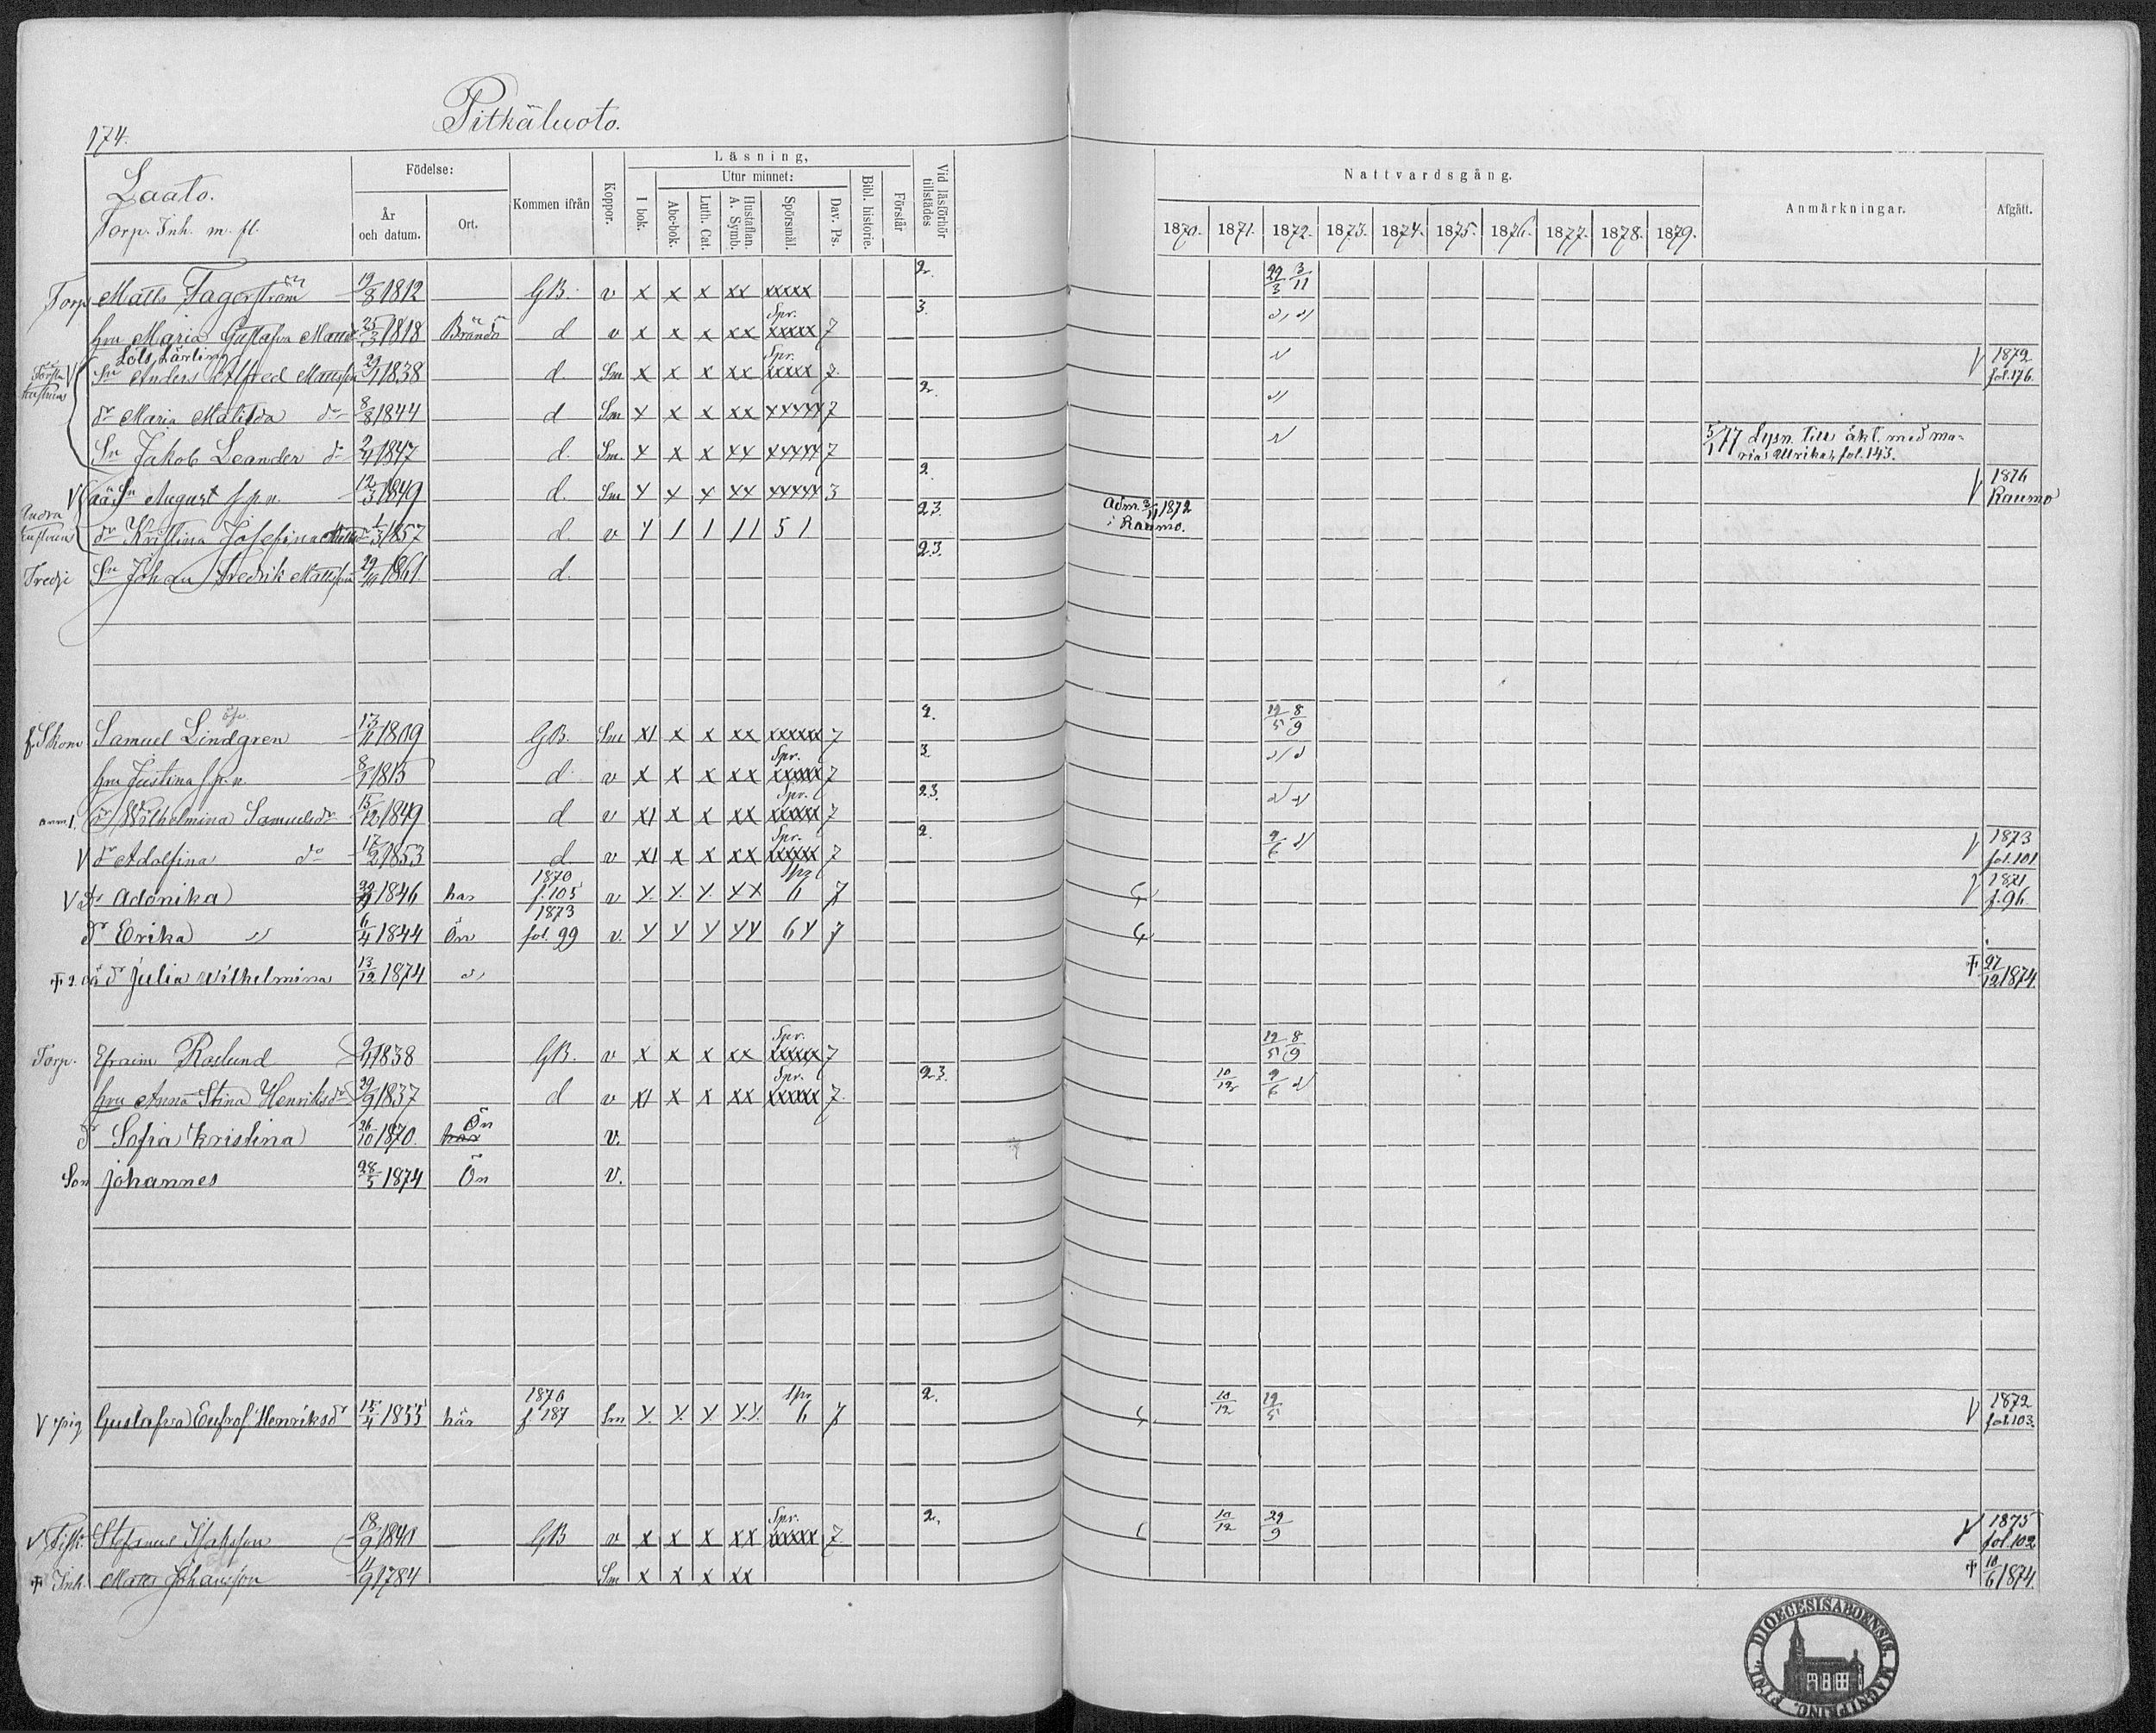 174.
Pitkäluoto.
Laato.
Torp. Inh. m. fl.
Födelse:
År och datum.
Ort.
Kommen ifrån
Koppor.
Läsning,
I bok.
Utur minnet:
Abc-bok.
Luth. Cat.
Hustaflan. A. Symb.
Spörsmål.
Dav. Ps.
Bibl. historie.
Förstår
Vid läsförhör tillstädes
Nattvardsgång.
1870. 1871. 1872. 1873. 1874. 1875. 1876. 1877. 1878. 1879.
Anmärkningar.
Afgått.
Torp Matts Fagerström 19/8 1812 GB. v x x x xx xxxxx 2. 22/3 3/11
hru Maria Gustafva Mattsdr 25/3 1818 Brändö d v x x x xx Spr. xxxxx 7 3.
Lots Lärling
V Sn Anders Alfred Mattsson 1838 d. Sm x x x xx Spr. xxxxx 7. V 1872 fol. 176.
dr Maria Matilda do 8/8 1844 d Sm x x x xx xxxxx 7 2.
Sn Jakob Leander do 1847 d. Sm. x x x xx xxxxx 7 5/1 77 Lysn. till äkt. med Maria Ulrika, fol. 143.
V Sn August 12/3 1849 d. Sm x x x xx xxxxx 3 2. V 1876 Raumo
Andra
dr Kristina Josefina 1/3 1857 d v 1 1 1 11 5 1 2.3. Adm. 3/11 1872 i Raumo.
Tredje Sn Johan Fredrik Mattsson 1861 d. 2.3.
f. Skom Samuel Lindgren 13/11 1809 GB. Sm xi x x xx xxxxxx 7 2. 12/5 8/9
hru Justina 1815 d v x x x xx Spr. xxxxx 7 3
dr Wilhelmina Samuelsdr 15/12 1849 d v xi x x xx Spr. xxxxx 7 2.3.
V dr Adolfina do 17/2 1853 d v xi x x xx Spr. xxxxx 7 2. 9/6 V 1873 fol. 101
V dr Adonika 1846 här 1870 f. 105 v x. x. x. xx 6 7 V 1871 f. 96.
dr Erika 6/4 1844 Ön 1873 fol. 99 v. x x x xx 6 x 7
dr Julia Wilhelmina 13/12 1874 † 27/12 1874.
Torp. Efraim Roslund 1838 GB. v x x x xx Spr. xxxxx 7 12/5 8/9
hru Anna Stina Henriksdr 29/9 1837 d v xi x x xx Spr. xxxxx 7. 2.3. 10/12 9/6
dr Sofia Kristina 26/10 1870. Ön v.
Son Johannes 28/5 1874 Ön v.
V pig Gustafva Eufros Henriksdr 15/4 1855 här 1870 f. 187 Sm x. x. x x.x. 6 7 2. 10/12 12/5 V 1872 fol. 103.
V Fisk. Stefanus Isaksson 18/9 1840 GB v x x x xx Spr. xxxxx 7. 2. 10/12 29/9 V 1875 fol. 102
† Inh. Matts Johansson 1784 Sm x x x xx † 10/6 1874.
DIOECESIS ABOENSIS. MAGNI PRINC. FINL.